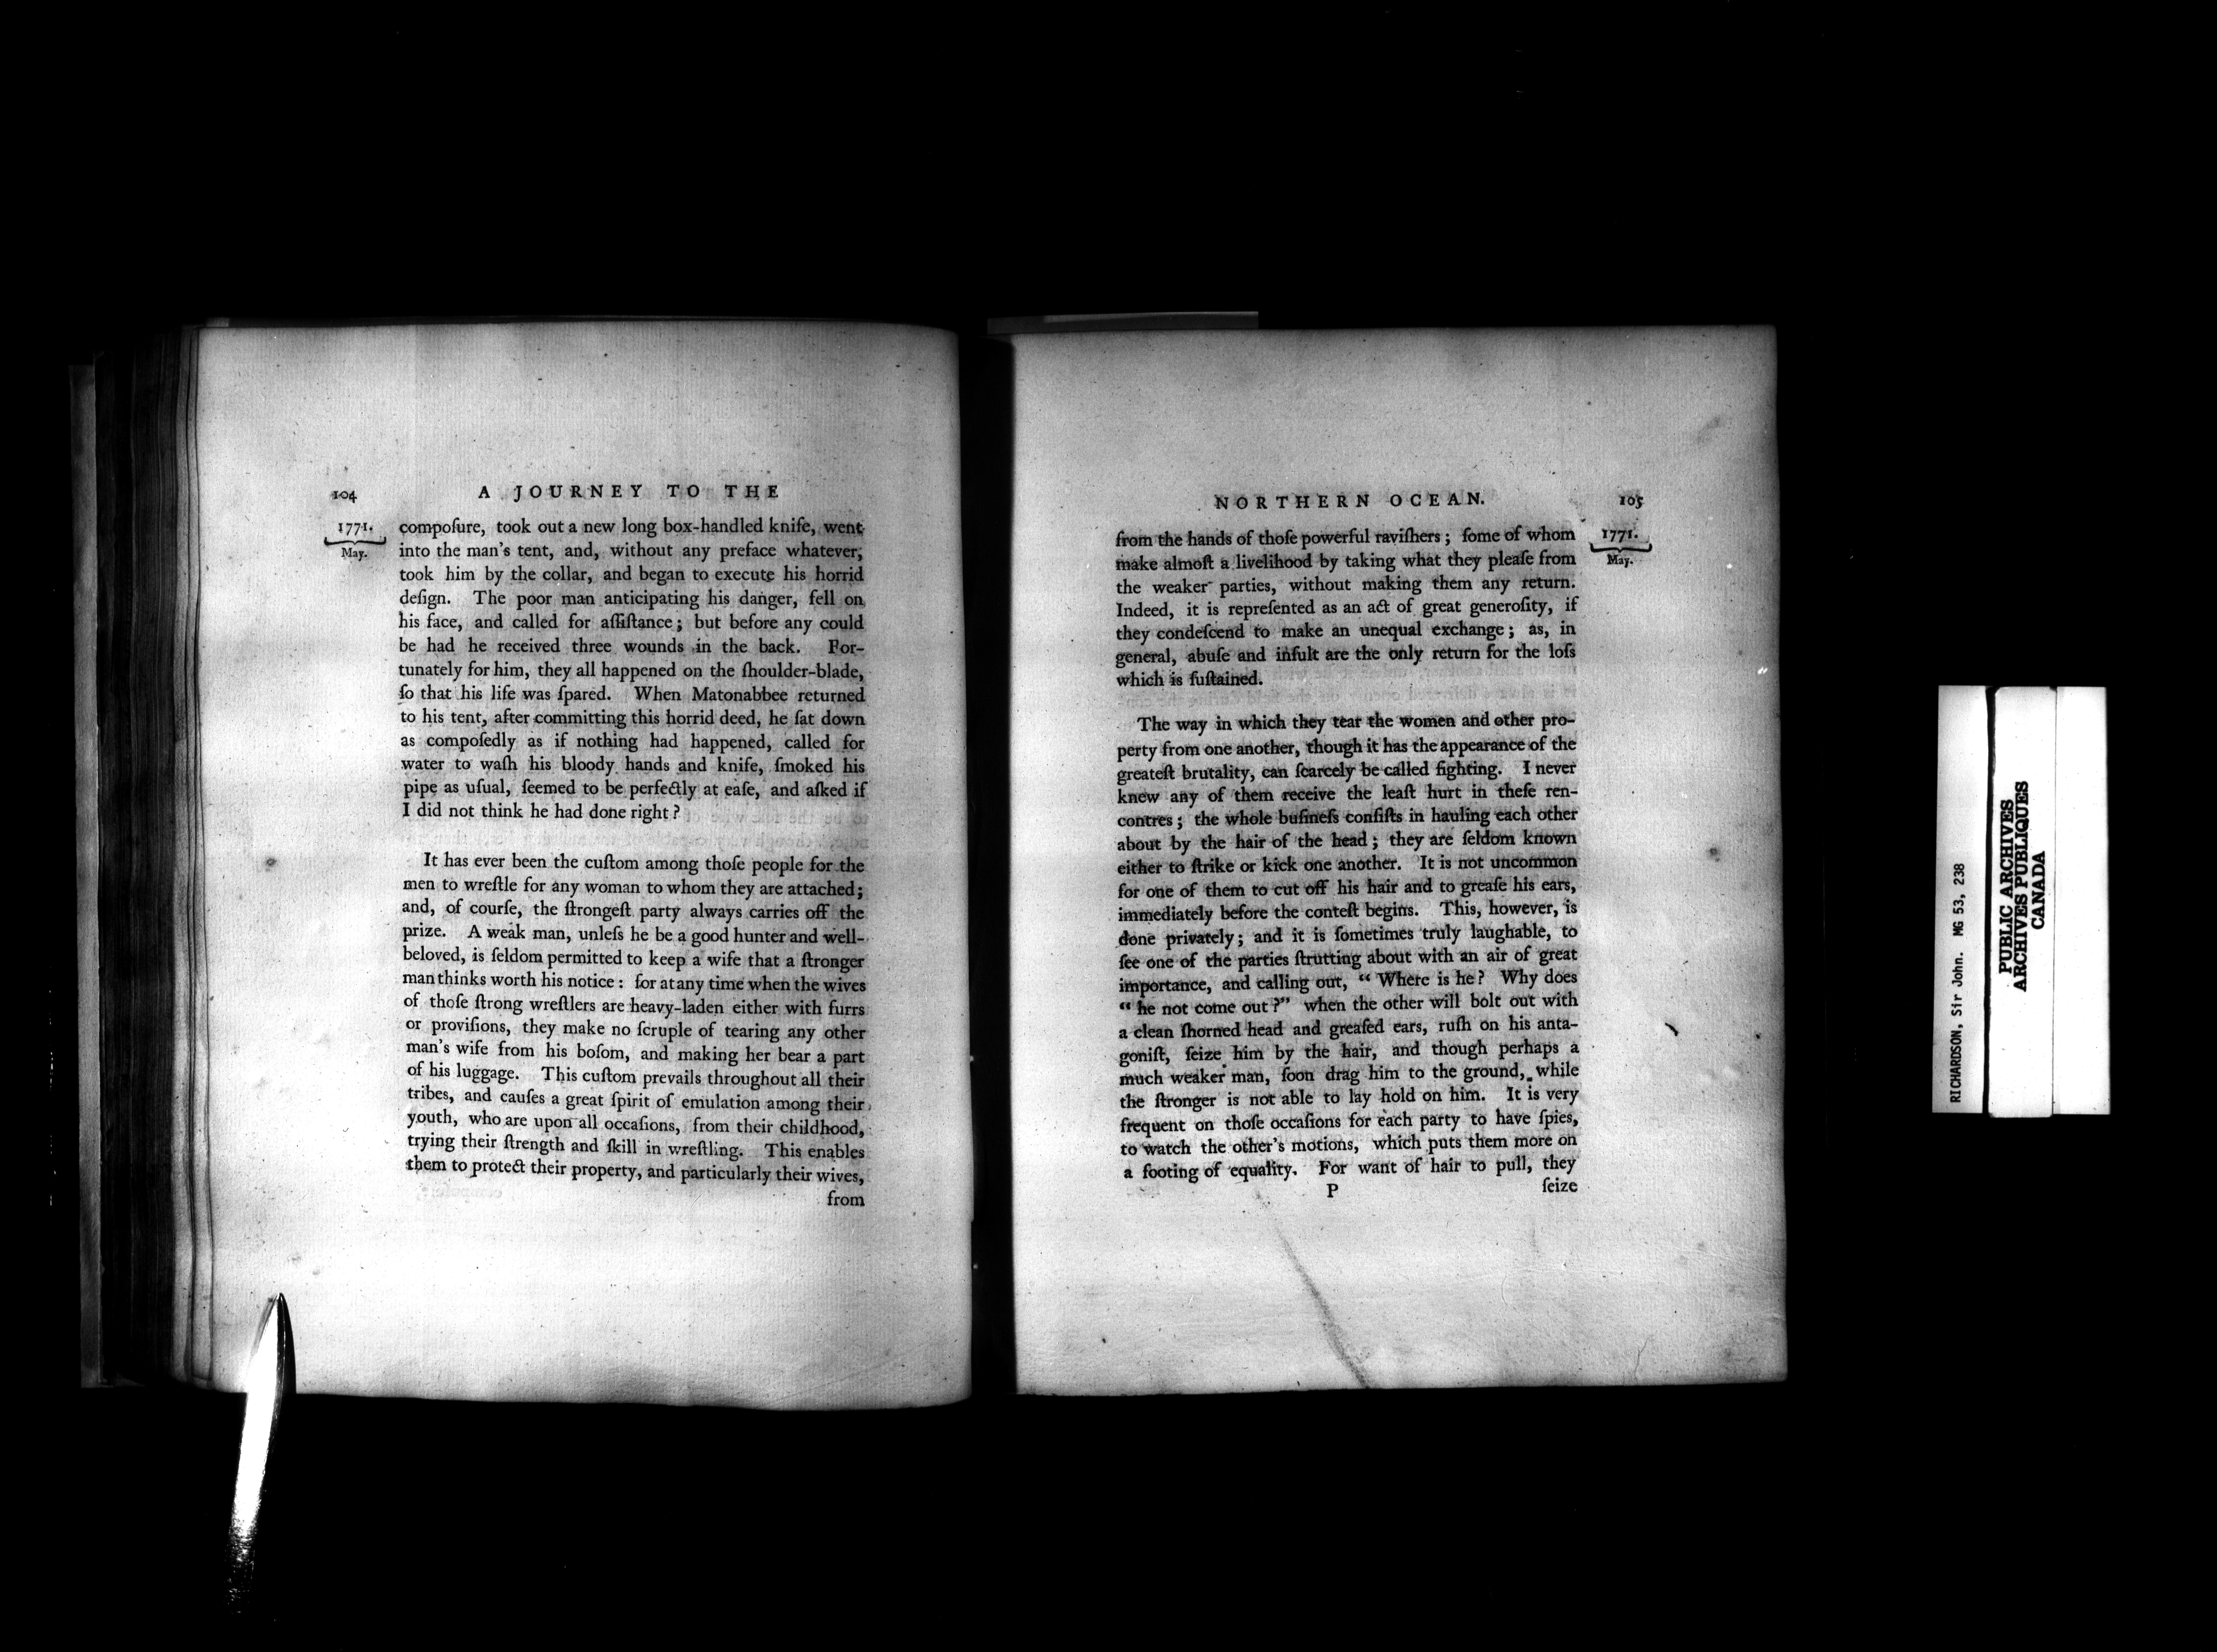 104
A JOURNEY TO THE
1771.
May.
compoſure, took out a new long box-handled knife, went
into the man's tent, and, without any preface whatever,
took him by the collar, and began to execute his horrid
deſign. The poor man anticipating his danger, fell on
his face, and called for aſſiſtance; but before any could
be had he received three wounds in the back. For-
tunately for him, they all happened on the ſhoulder-blade,
ſo that his life was ſpared. When Matonabbee returned
to his tent, after committing this horrid deed, he ſat down
as compoſedly as if nothing had happened, called for
water to waſh his bloody hands and knife, ſmoked his
pipe as uſual, ſeemed to be perfectly at eaſe, and aſked if
I did not think he had done right?
It has ever been the cuſtom among thoſe people for the
men to wreſtle for any woman to whom they are attached;
and, of courſe, the ſtrongeſt party always carries off the
prize. A weak man, unleſs he be a good hunter and well-
beloved, is ſeldom permitted to keep a wife that a ſtronger
man thinks worth his notice: for at any time when the wives
of thoſe ſtrong wreſtlers are heavy-laden either with furrs
or proviſions, they make no ſcruple of tearing any other
man's wife from his boſom, and making her bear a part
of his luggage. This cuſtom prevails throughout all their
tribes, and cauſes a great ſpirit of emulation among their
youth, who are upon all occaſions, from their childhood,
trying their ſtrength and ſkill in wreſtling. This enables
them to protect their property, and particularly their wives,
from
NORTHERN OCEAN.
105
1771.
May.
from the hands of thoſe powerful raviſhers; ſome of whom
make almoſt a livelihood by taking what they pleaſe from
the weaker parties, without making them any return.
Indeed, it is repreſented as an act of great generoſity, if
they condeſcend to make an unequal exchange; as, in
general, abuſe and inſult are the only return for the loſs
which is ſuſtained.
The way in which they tear the women and other pro-
perty from one another, though it has the appearance of the
greateſt brutality, can ſcarcely be called fighting. I never
knew any of them receive the leaſt hurt in theſe ren-
contres; the whole buſineſs conſiſts in hauling each other
about by the hair of the head; they are ſeldom known
either to ſtrike or kick one another. It is not uncommon
for one of them to cut off his hair and to greaſe his ears,
immediately before the conteſt begins. This, however, is
done privately; and it is ſometimes truly laughable, to
ſee one of the parties ſtrutting about with an air of great
importance, and calling out, “ Where is he? Why does
“ he not come out?” when the other will bolt out with
a clean ſhorned head and greaſed ears, ruſh on his anta-
goniſt, ſeize him by the hair, and though perhaps a
much weaker man, ſoon drag him to the ground, while
the ſtronger is not able to lay hold on him. It is very
frequent on thoſe occaſions for each party to have ſpies,
to watch the other's motions, which puts them more on
a footing of equality. For want of hair to pull, they
P
ſeize
RICHARDSON, Sir John. MG 53, 238
PUBLIC ARCHIVES
ARCHIVES PUBLIQUES
CANADA